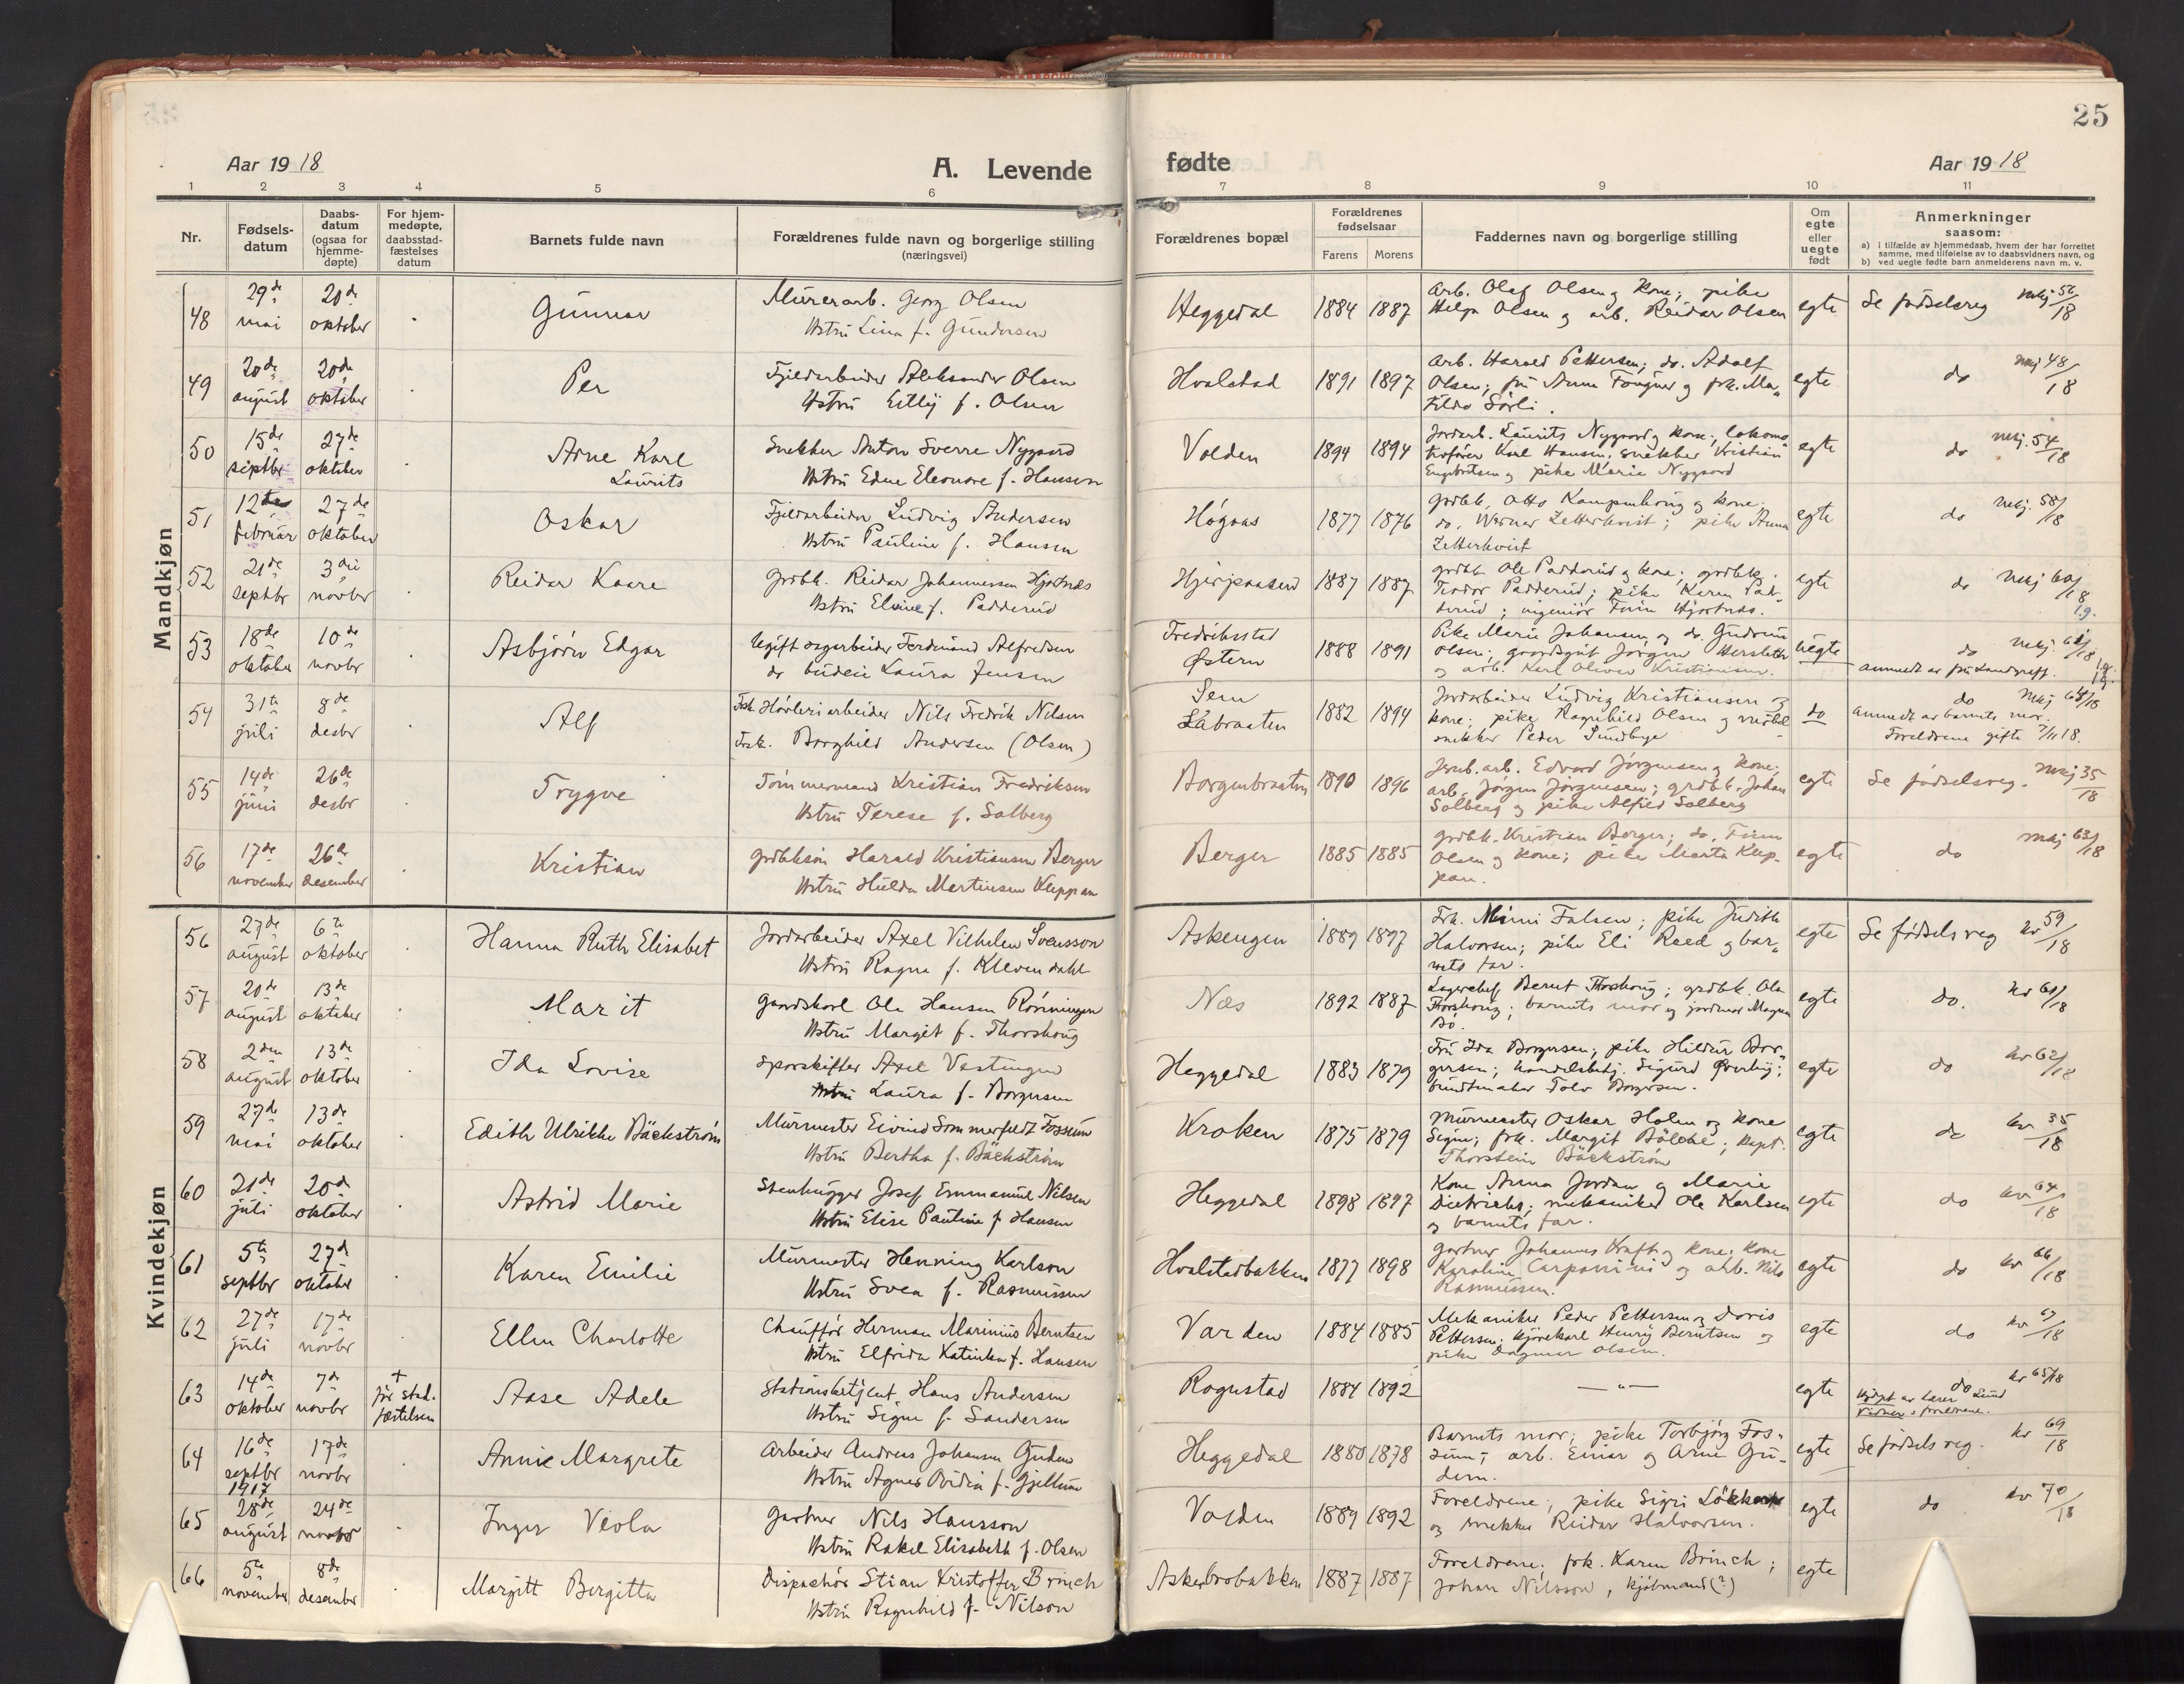 25
Aar 1918
A. Levende fødte
Aar 1918
1 2 3 4 5 6 7 8 9 10 11
Nr.
Fødsels-
datum
Daabs-
datum
(ogsaa for
hjemme-
døpte)
For hjem-
medøpte,
daabsstad-
fæstelses
datum
Barnets fulde navn
Forældrenes fulde navn og borgerlige stilling
(næringsvei)
Forældrenes bopæl
Forældrenes
fødselsaar
Farens Morens
Faddernes navn og borgerlige stilling
Om
egte
eller
uegte
født
Anmerkninger
saasom:
a) i tilfælde av hjemmedaab, hvem der har forrettet
samme, med tilføielse av to daabsvidners navn, og
b) ved uegte fødte barn anmelderens navn m. v.
Mandkjøn
48 29de mai 20de oktober Gunnar
Murerarb. Georg Olsen
Hstru Lina f. Gundersen
Heggedal 1884 1887
Arb. Olaf Olsen og kone; pike
Helga Olsen og arb. Reidar Olsen
egte Se fødselsreg mkj 56/18
49 20de august 20de oktober Per
Fjeldarbeider Aleksander Olsen
Hstru Eilly f. Olsen
Hvalstad 1891 1897
Arb. Harald Pettersen; do. Adolf
Olsen; fru Anna Fougner og frk. Ma-
tilde Sørli.
egte do mkj 48/18
50 15de septbr 27de oktober Arne Karl
Laurits
Snekker Anton Sverre Nygaard
Hstru Edne Eleonore f. Hansen
Volden 1894 1894
Jordarb. Laurits Nygaard og kone; lokomo-
tivfører Karl Hansen; snekker Kristian
Engebretsen og pike Marie Nygaard
egte do mkj. 54/18
51 12te februar 27de oktober Oskar
Fjeldarbeider Ludvig Andersen
Hstru Pauline f. Hansen
Høgaas 1877 1876
grdbk. Otto Kampenhaug og kone;
do. Werner Zetterkvist; pike Anna
Zetterkvist
egte do mkj. 58/18
52 21de septbr 3die novbr Reidar Kaare
Grdbk. Reidar Johannessen Hjortnæs
Hstru Elvine f. Padderud
1887 1887
grdbk Ole Padderud og kone; grdbk.
Teodor Padderud; pike Karen Pad-
derud; ingeniør Finn Hjortnæs.
egte do mkj 60/18
53 18de oktober 10de novbr Asbjørn Edgar
Ugift sagarbeider Ferdinand Alfredsen
do budeie Laura Jensen
Fredriksstad
Østern
1888 1891
Pike Marie Johansen og do. Gudrun
Olsen; gaardsgut Jørgen Hersleth
og arb. Karl Oliver Kristiansen.
uegte do mkj. 61/18
anmeldt av fru Landgraff.
54 31te juli 8de desbr Alf
Frsk. Høvleriarbeider Nils Fredrik Nilsen
Frsk. Borghild Andersen (Olsen)
Sem
Labraaten
1882 1894
Jordarbeider Ludvig Kristiansen og
kone; pike Ragnhild Olsen og møbel-
snekker Peder Sundbye
do do mkj 64/18
anmeldt av barnets mor.
Foreldrene gifte 7/11 18.
55 14de juni 26de desbr Trygve
Tømmermand Kristian Fredriksen
Hstru Terese f. Solberg
Borgenbraaten 1890 1896
Jernb.arb. Edvard Jørgensen og kone;
arb. Jørgen Jørgensen; grdbk. Johan
Solberg og pike Alfild Solberg
egte Se fødselsreg. mkj 35/18
56 17de november 26de desember Kristian
Grdbksøn Harald Kristiansen Berger
Hstru Hulda Martinsen Kleppan
Berger 1885 1885
grdbk. Kristian Berger; do. Finn
Olsen og kone; pike Marta Klep-
pan.
egte do mkj 63/18
Kvindekjøn
56 27de august 6te oktober Hanna Ruth Elisabet
Jordarbeider Axel Vilhelm Svensson
Hstru Ragna f. Klevendahl
Askengen 1889 1897
Frk. Mimi Falsen; pike Judith
Halvorsen; pike Eli Reed og bar-
nets far.
egte Se fødselsreg kv 59/18
57 20de august 13de oktober Marit
Gaardskarl Ole Hansen Rønningen
Hstru Margit f. Thorshaug
Næs 1892 1887
Lagerchef Bernt Thorshaug; grdbk. Ola
Thorshaug; barnets mor og jordmor Magna
Bø.
egte do. kv 61/18
58 2den august 13de oktober Ida Lovise
Sporskifter Axel Vestengen
Hstru Laura f. Borgersen
Heggedal 1883 1879
Fru Ida Borgersen; pike Hildur Bor-
gersen; handelsbetj. Sigurd Øverby;
buntmaker Tolv Borgersen.
egte do kv 62/18
59 27de mai 13de oktober Edith Ulrikke Bäckstrøm
Murmester Eivind Sommerfeldt Fossum
Hstru Bertha f. Bäckstrøm
Kroken 1875 1879
Murmester Oskar Holm og kone
Signe; frk. Margit Bølche; kapt.
Thorstein Bäckstrøm
egte do kv 35/18
60 21de juli 20de oktober Astrid Marie
Stenhugger Josef Emmanuel Nilsen
Hstru Elise Pauline f. Hansen
Heggedal 1898 1897
Kone Anna Jordan og Marie
Dietrichs; mekaniker Ole Karlsen
og barnets far.
egte do kv 64/18
61 5te septbr 27de oktober Karen Emilie
Murmester Henning Karlson
Hstru Svea f. Rasmussen
Hvalstadbakken 1877 1898
Gartner Johannes Kraft og kone; kone
Karoline Carpanini og arb. Nils
Rasmussen.
egte do kv 66/18
62 27de juli 17de novbr Ellen Charlotte
Chauffør Herman Marinius Berntsen
Hstru Elfrida Katinka f. Hansen
Varden 1884 1885
Mekaniker Peder Pettersen og Doris
Pettersen; kjørekarl Henry Berntsen og
pike Dagmar Olsen.
egte do kv 67/18
63 14de oktober 7de novbr + før stad-
fæstelsen
Aase Adele
Stationsbetjent Hans Andersen
Hstru Signe f. Sandersen
Rogustad 1884 1892 — " —
egte do kv 65/18
Hjdpt av lærer Lund
Vidner: foreldrene.
64 16de septbr 1917 17de novbr Annie Margrete
Arbeider Andreas Johansen Gudem
Hstru Agnes Ovidia f. Gjellum
Heggedal 1880 1878
Barnets mor; pike Torbjørg Fos-
sum; arb. Einar og Arne Gu-
dem.
egte Se fødselsreg. kv 69/18
65 28de august 24de novbr Inger Viola
Gartner Nils Hansson
Hstru Rakel Elisabeth f. Olsen
Volden 1889 1892
Foreldrene; pike Sigri
og snekker Reidar Halvorsen.
egte do kv 70/18
66 5te november 8de desember Margitt Birgitta
Dispachør Stian Kristoffer Brinch
Hstru Ragnhild f. Nilson
Askerbrobakken 1887 1887
Foreldrene; frk. Karen Brinch;
Johan Nilsson, kjøbmand (?)
egte